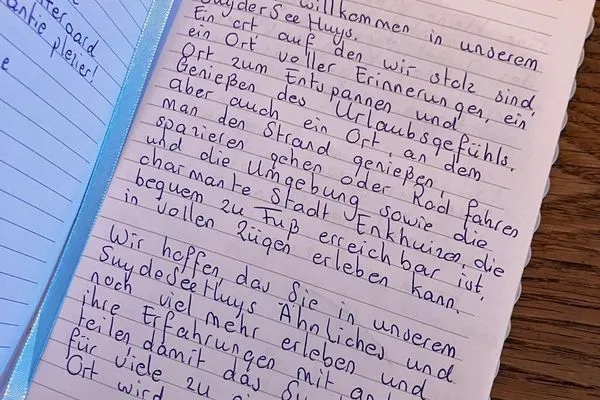 uiteraard
antie plezier!
e
willkommen in unserem
SuyderSeeHuys.
Ein Ort auf den wir stolz sind,
ein Ort voller Erinnerungen, ein
Ort zum Entspannen und
Genießen des Urlaubsgefühls.
aber auch ein Ort, an dem
man den Strand genießen,
spazieren gehen oder Rad fahren
und die Umgebung sowie die
charmante Stadt Enkhuizen, die
bequem zu Fuß erreichbar ist,
in vollen Zügen erleben kann.
Wir hoffen das Sie in unserem
SuydeSeeHuys Ähnliches und
noch viel mehr erleben und
ihre Erfahrungen mit an
teilen damit das Su
für viele zu
Ort wird